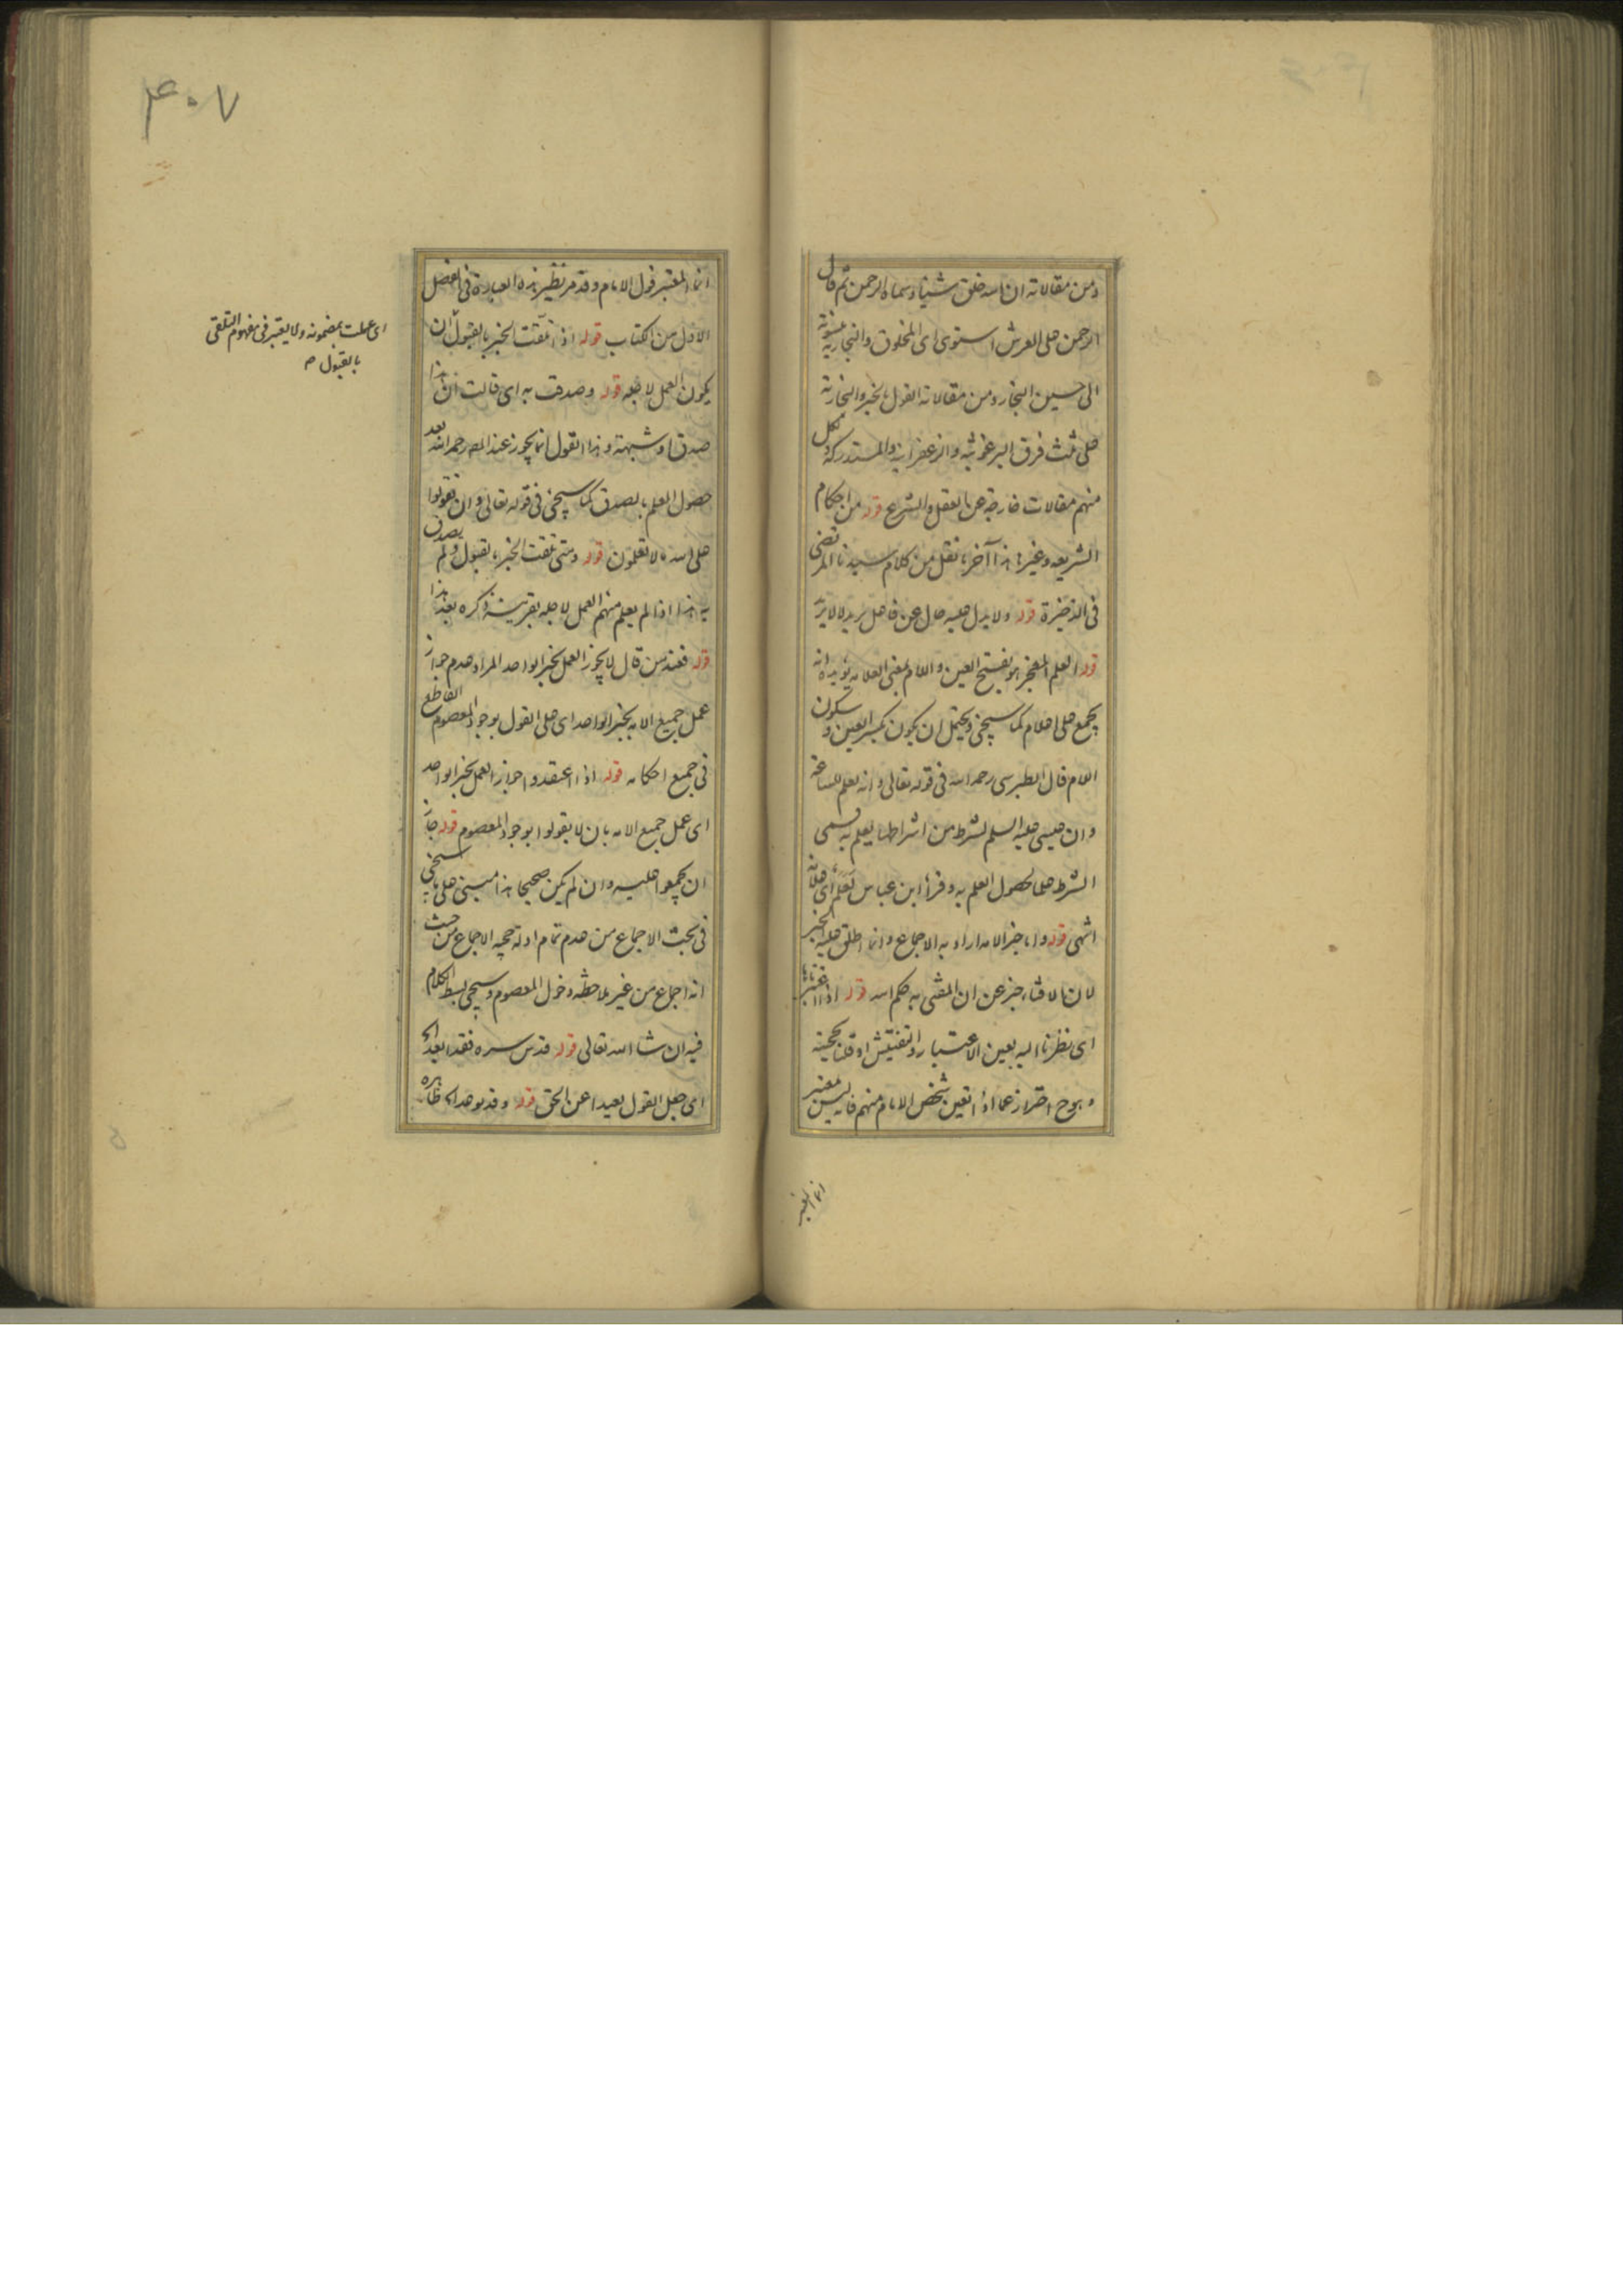 ومن مقالاته ان الله خلق شيئا وسماه الرحمن ثم قال
الرحمن على العرش استوى اى المخلوق والنجارية منسوبة
الى حسين النجار ومن مقالاته القول بالجبر والنجارية
على ثلث فرق البرغوثيه والزعفرانية والمستدركة ولكل
منهم مقالات خارجة عن العقل والشرع قوله من احكام
الشريعه وغيرها هذا آخر ما نقل من كلام سيدنا المرتضى
فى الذخيرة قوله ولا يدل عليه حال عن فاعل يريد لا لا يرد
قوله العلم المعجز هو بفتح العين واللام بمعنى العلامه يؤيده انه
يجمع على اعلام كما سيجئ ويحتمل ان يكون بكسر العين وسكون
اللام قال الطبرسى رحمه الله فى قوله تعالى وانه لعلم للساعة
وان عيسى عليه السلم لشرط من اشراطها يعلم به فسمى
الشرط علما لحصول العلم به وقرأ ابن عباس لعلم اى علامة
انتهى قوله واما خبر الامه اراد به الاجماع وانما اطلق عليه الخبر
لان الافتاء خبر عن ان المفتى به حكم الله قوله اذا اعتبرناها
اى نظرنا اليه بعين الاعتبار والتفتيش او قلنا بحجيته
وبوح احتراز عما اذا تعين شخص الامام منهم فانه ليس المعتبر
انما المعتبر
انما المعتبر قول الامام وقد مر نظير هذه العبارة فى الفصل
الاول من الكتاب قوله اذا تلقت الخبر بالقبول ان
يكون العمل لاجله قوله وصدقت به اى قالت ان هذا
صدق او شبهته وهذا القول انما يجوز عند المص رحمه الله بعد
حصول العلم بالصدق كما سيجئ فى قوله تعالى وان تقولوا
على الله ما لا تعلمون قوله ومتى تلقت الخبر بالقبول ولم يصدق
به هذا اذا لم يعلم منهم العمل لاجله بقرينة ذكره بعد هذا
قوله فعند من قال لا يجوز العمل بخبر الواحد المراد عدم جواز
عمل جميع الامه بخبر الواحد اى على القول بوجود المعصوم القاطع
فى جميع احكامه قوله اذا اعتقدوا جواز العمل بخبر الواحد
اى عمل جميع الامه بان لا يقولوا بوجود المعصوم قوله جاز
ان يجمعوا عليه وان لم يكن صحيحا هذا مبنى على ما سيجئ
فى بحث الاجماع من عدم تمام ادلة حجيه الاجماع من حيث
انه اجماع من غير ملاحظه دخول المعصوم وسيجئ بسط الكلام
فيه ان شاء الله تعالى قوله قدس سره فقد ابعد
اى جعل القول بعيدا عن الحق قوله وقد
اى عملت بمضمونه ولا يعتبر فى مفهوم التلقى
بالقبول
۴۰۷